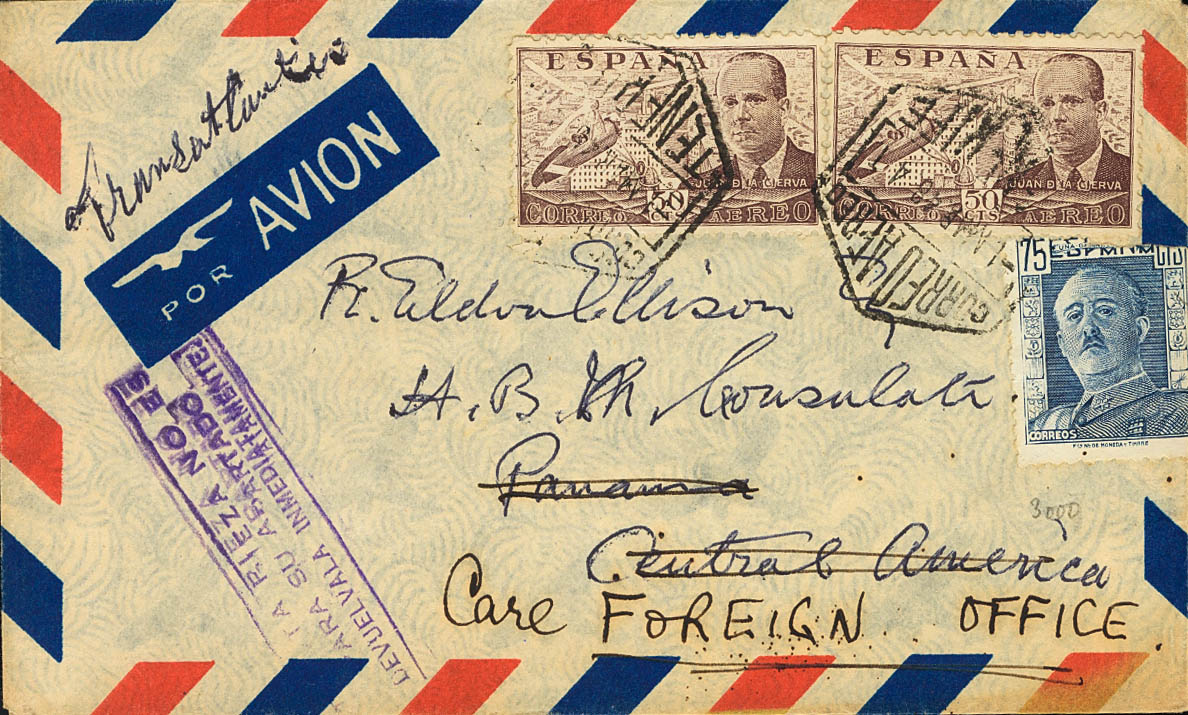 Transatlantic
POR AVION
ESPAÑA
JUAN DE LA CIERVA
50
CORREO CTS AEREO
ESPAÑA
JUAN DE LA CIERVA
50
CORREO CTS AEREO
CORREO AEREO
75 CTS
CORREOS
Eldon Ellison
H. B. M. Consulate
Panama
Central America
3000
Care FOREIGN OFFICE
PIEZA NO ES
PARA SU APARTADO
DEVUELVALA INMEDIATAMENTE